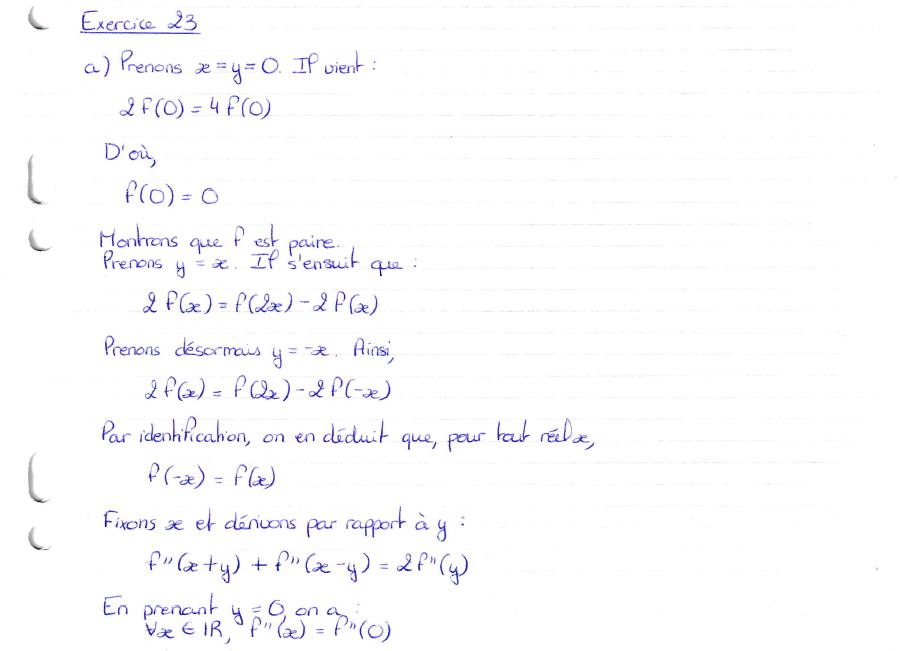 Exercice 23
a) Prenons x = y = 0. Il vient :
2f(0) = 4f(0)
D'où,
f(0) = 0
Montrons que f est paire.
Prenons y = x. Il s'ensuit que :
2f(x) = f(2x) - 2f(x)
Prenons désormais y = -x. Ainsi,
2f(x) = f(2x) - 2f(-x)
Par identification, on en déduit que, pour tout réel x,
f(-x) = f(x)
Fixons x et dérivons par rapport à y :
f''(x+y) + f''(x-y) = 2f''(y)
En prenant y = 0, on a :
∀x ∈ IR, f''(x) = f''(0)